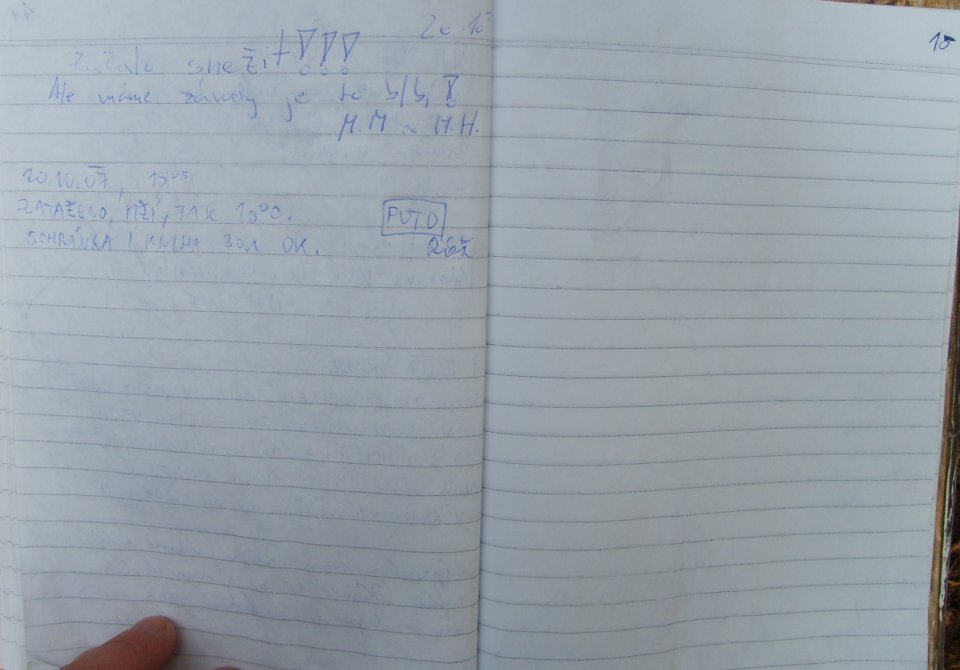 20.10
15
Začalo sněžit!!!
Ale máme závody je to blb!
M.M a M.H.
20.10.07, 15 05
ZATAŽENO, MŽÍ, TAK 10°C.
PUTO
SCHRÁNKA I KNIHA JSOU OK.